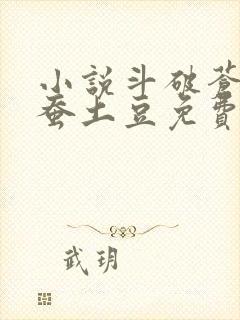 小說斗破蒼
蚕土豆免費
武玥